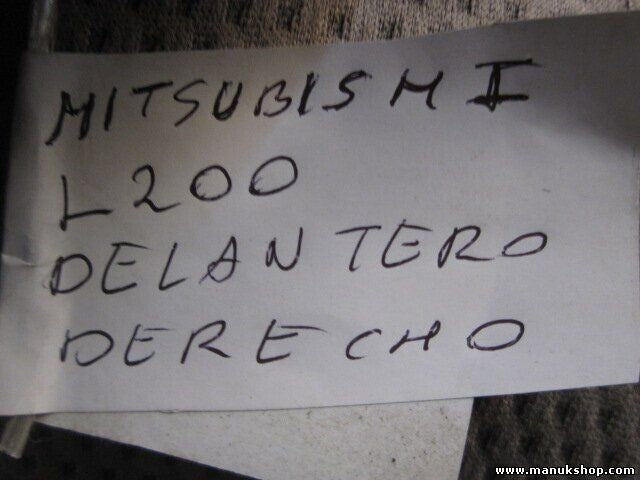 MITSUBISHI
L200
DELANTERO
DERECHO
www.manukshop.com